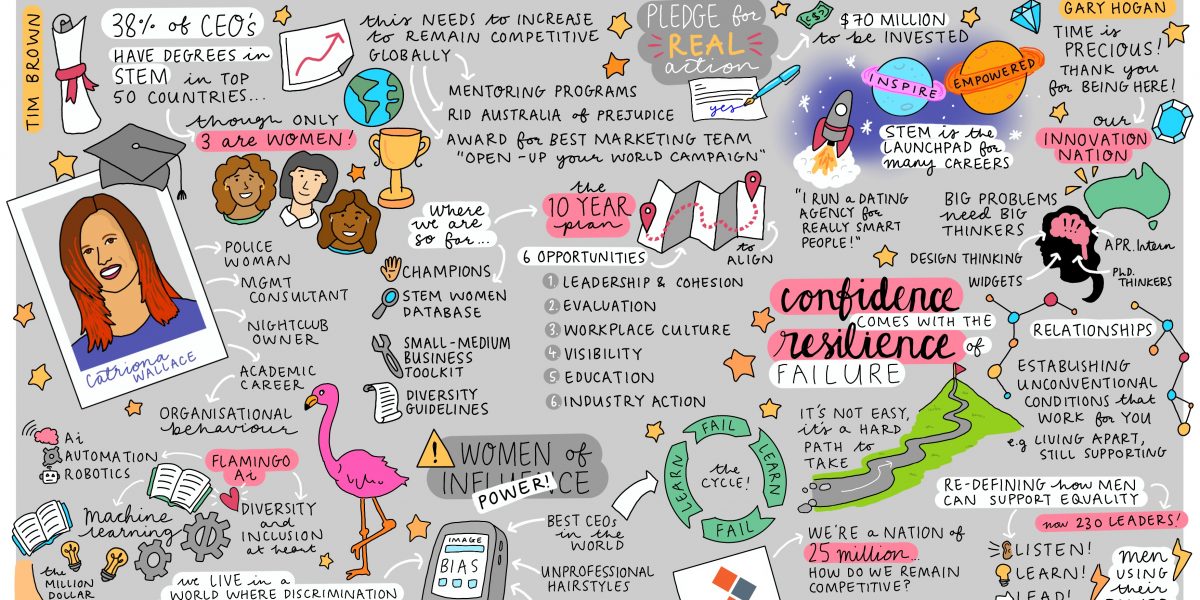 TIM BROWN
38% of CEO's
HAVE DEGREES in
STEM in TOP
50 COUNTRIES...
though ONLY
3 are WOMEN!
this NEEDS to INCREASE
to REMAIN COMPETITIVE
GLOBALLY
MENTORING PROGRAMS
RID AUSTRALIA of PREJUDICE
AWARD for BEST MARKETING TEAM
"OPEN-UP your WORLD CAMPAIGN"
PLEDGE for
REAL
action
yes
$70 MILLION
to be INVESTED
INSPIRE
EMPOWERED
STEM is the
LAUNCHPAD for
many CAREERS
GARY HOGAN
TIME is
PRECIOUS!
THANK you
for BEING HERE!
our
INNOVATION
NATION
"I RUN a DATING
AGENCY for
REALLY SMART
PEOPLE!"
BIG PROBLEMS
need BIG
THINKERS
DESIGN THINKING
WIDGETS
APR.Intern
PhD.
THINKERS
Catriona
WALLACE
POLICE
WOMAN
MGMT
CONSULTANT
NIGHTCLUB
OWNER
ACADEMIC
CAREER
ORGANISATIONAL
behaviour
where
we are
so far...
CHAMPIONS
STEM WOMEN
DATABASE
SMALL-MEDIUM
BUSINESS
TOOLKIT
DIVERSITY
GUIDELINES
the
10 YEAR
plan
to
ALIGN
6 OPPORTUNITIES
1. LEADERSHIP & COHESION
2. EVALUATION
3. WORKPLACE CULTURE
4. VISIBILITY
5. EDUCATION
6. INDUSTRY ACTION
confidence
COMES WITH THE
resilience of
FAILURE
IT'S NOT EASY,
it's A HARD
PATH to
TAKE
RELATIONSHIPS
ESTABLISHING
UNCONVENTIONAL
CONDITIONS that
WORK for YOU
e.g LIVING APART,
STILL SUPPORTING
Ai
AUTOMATION
ROBOTICS
FLAMINGO
Ai
Machine
learning
DIVERSITY
and
INCLUSION
at heart
the
MILLION
DOLLAR
we LIVE in a
WORLD WHERE DISCRIMINATION
WOMEN of
INFLUENCE
POWER!
IMAGE
BIAS
BEST CEOs
in the
WORLD
UNPROFESSIONAL
HAIRSTYLES
FAIL
LEARN
FAIL
LEARN
the
CYCLE!
WE'RE a NATION of
25 million...
HOW DO WE REMAIN
COMPETITIVE?
RE-DEFINING how MEN
CAN SUPPORT EQUALITY
now 230 LEADERS!
LISTEN!
LEARN!
LEAD!
men
USING
their